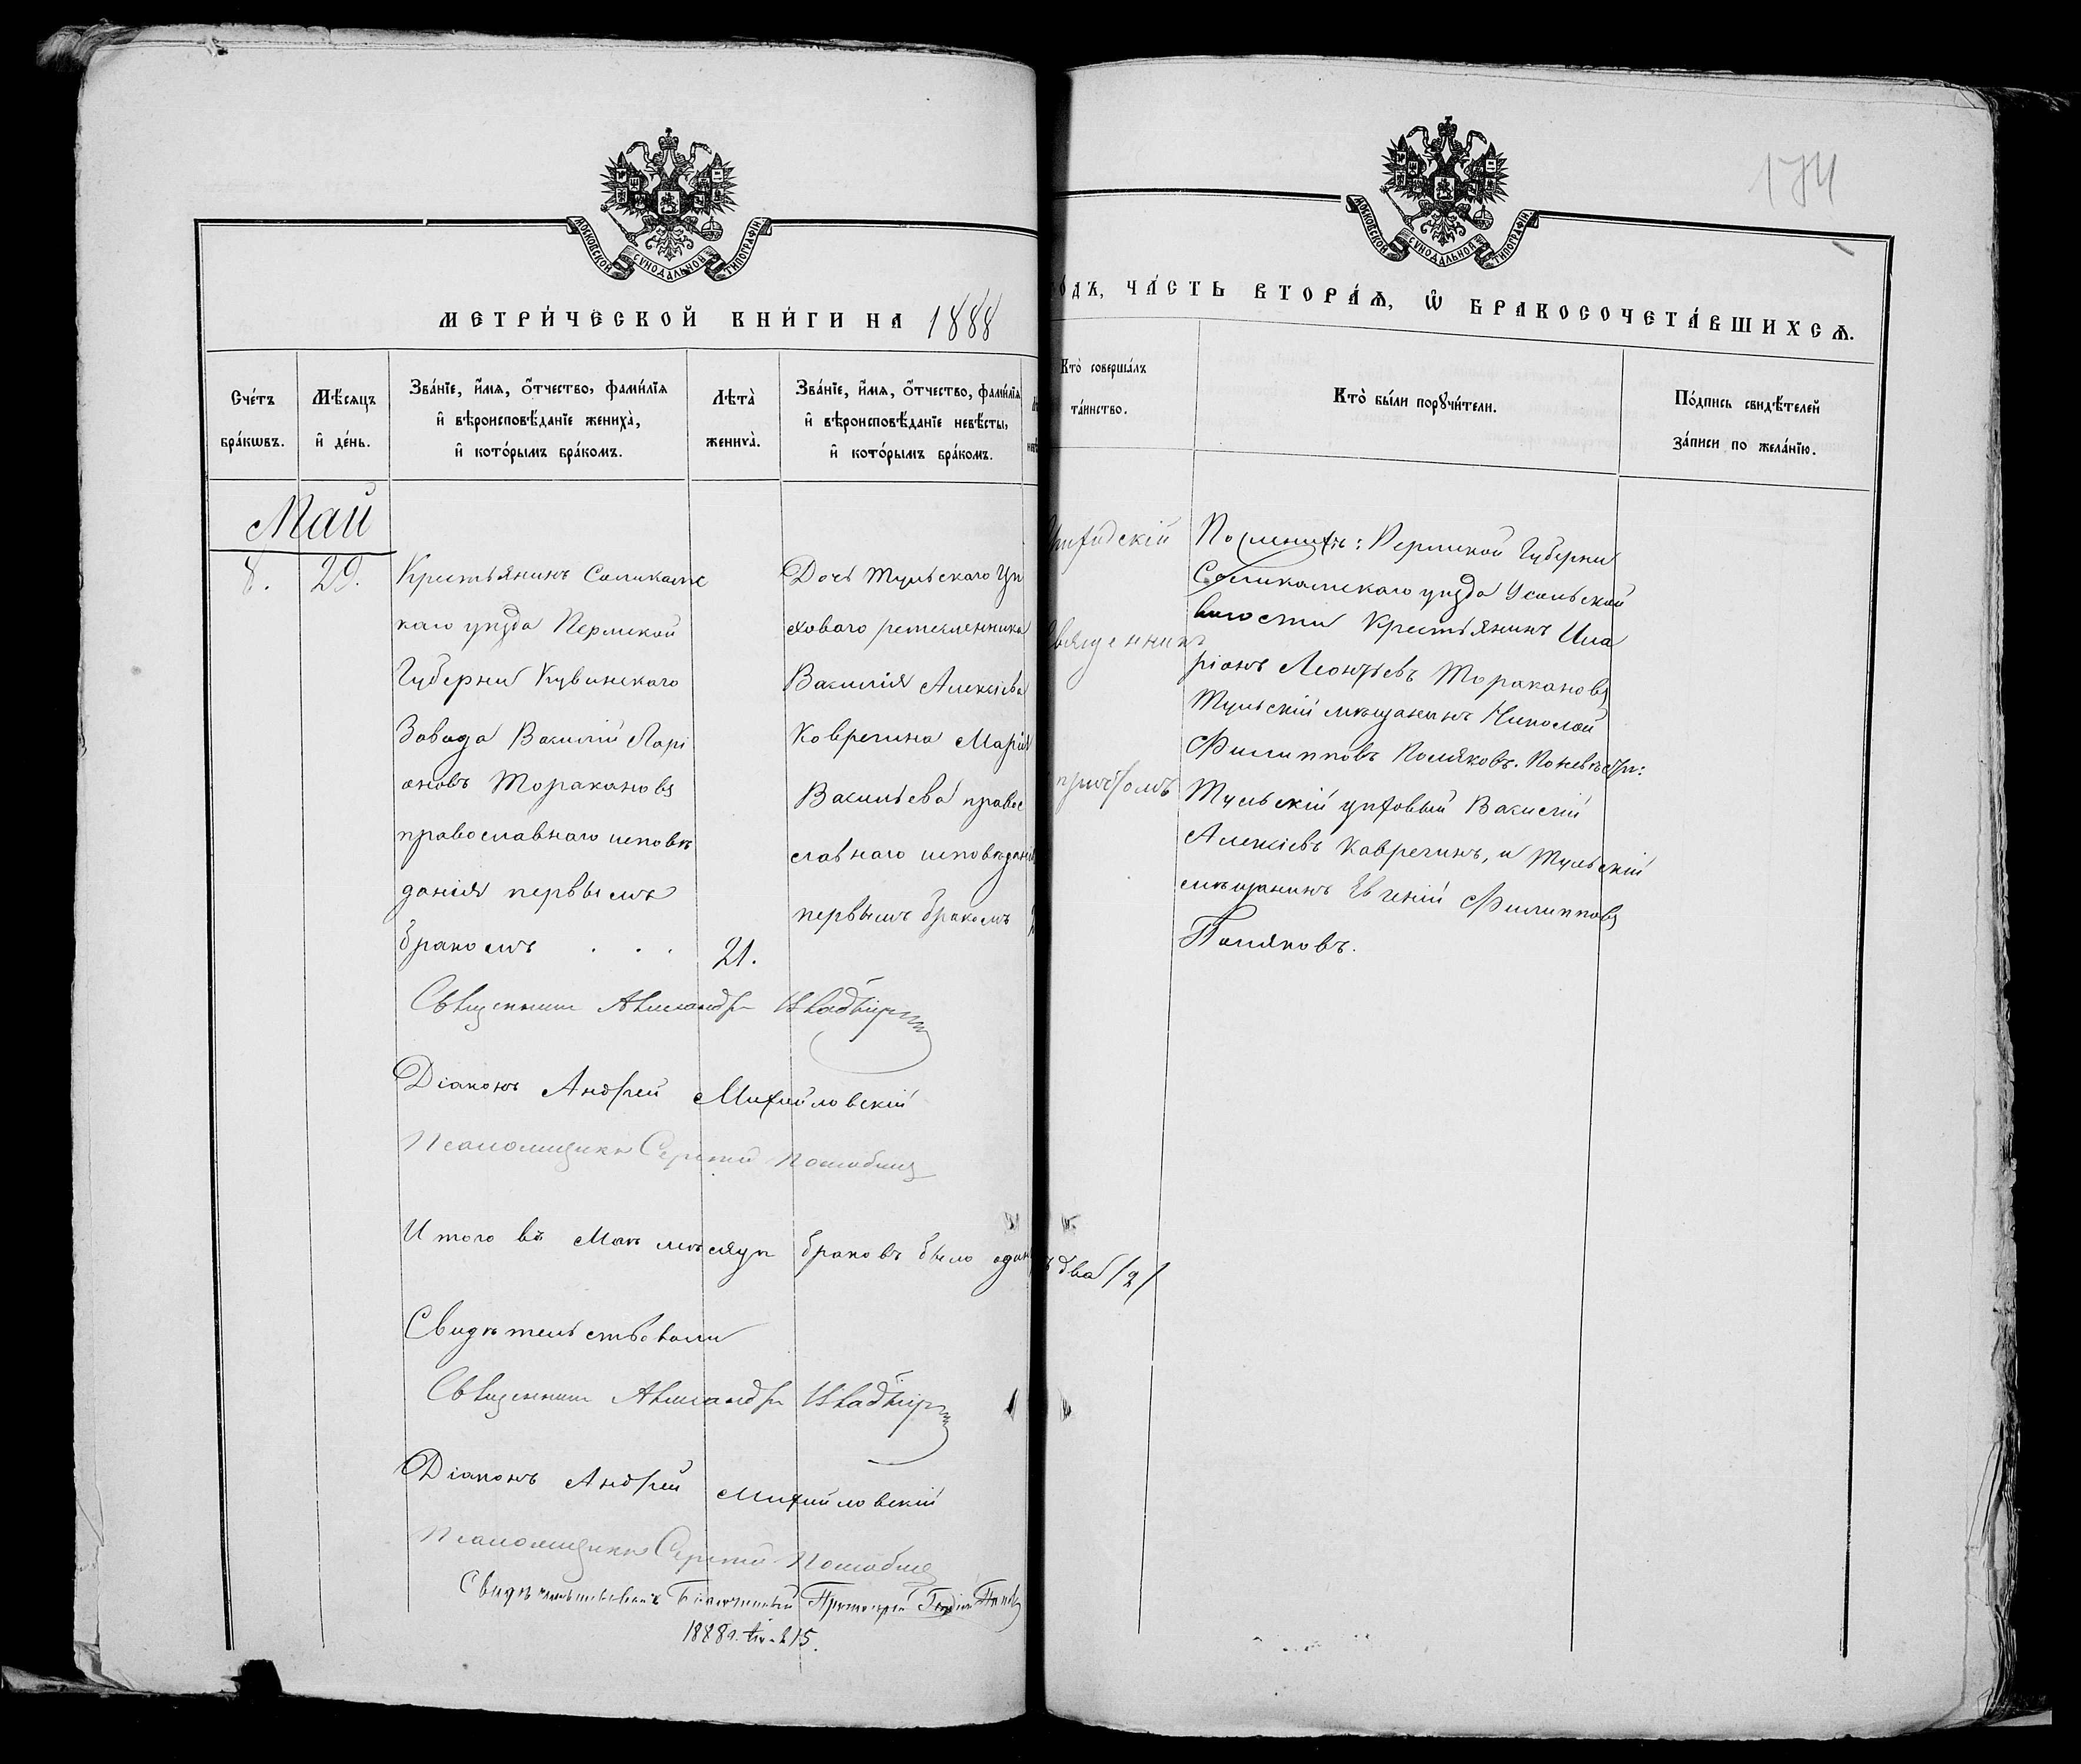 174
МОСКОВСКОЙ СУНОДАЛЬНОЙ ТИПОГРАФІИ
МОСКОВСКОЙ СУНОДАЛЬНОЙ ТИПОГРАФІИ
МЕТРИ́ЧЕСКОЙ КНИ́ГИ НА 1888
ГО́ДЪ, ЧА́СТЬ ВТОРА́Ѧ, Ѡ҆ БРАКОСОЧЕТА́ВШИХСѦ.
Сче́тъ бра́кѡвъ.
Мѣ́сяцъ и҆ де́нь.
Зва́нїе, и҆́мя, ѻ҆́тчество, фами́лїя
и҆ вѣроисповѣ́данїе жениха̀,
и҆ кото́рымъ бра́комъ.
Лѣта̀ жениха̀.
Зва́нїе, и҆́мя, ѻ҆́тчество, фами́лїя
и҆ вѣроисповѣ́данїе невѣ́сты,
и҆ кото́рымъ бра́комъ.
Кто̀ соверша́лъ
та́инство.
Кто̀ бы́ли порꙋчи́тели.
По́дпись свидѣ́телей
за́писи по жела́нїю.
Май
8.
29.
Крестьянинъ Соликамс
каго уѣзда Пермской
Губерніи Кувинскаго
Завода Василій Ларі
оновъ Торакановъ
православнаго исповѣ
данія первымъ
бракомъ . . .
21.
Дочь Тульскаго Цѣ
ховаго ремесленника
Василія Алексіева
Коврегина Марія
Васильева право
славнаго исповѣданія
первымъ бракомъ
Священникъ
причтомъ
По женихѣ: Пермской Губерніи
Соликамскаго уѣзда Усольской
волости Крестьянинъ Ила
ріонъ Леонтьевъ Торакановъ
Тульскій мѣщанинъ Николай
Филипповъ Поляковъ. По невѣстѣ:
Тульскій цѣховый Василій
Алексіевъ Коврегинъ, и Тульскій
мѣщанинъ Евгеній Филипповъ
Поляковъ.
Священникъ Александръ
Діаконъ Андрей Михайловскій
Псаломщикъ Сергій
Итого въ Маѣ мѣсяцѣ браковъ было два /2/
Свидѣтельствовали
Священникъ Александръ
Діаконъ Андрей Михайловскій
Псаломщикъ Сергій
Свидѣтельствовалъ Благочинный Протоіерей
1888 г.